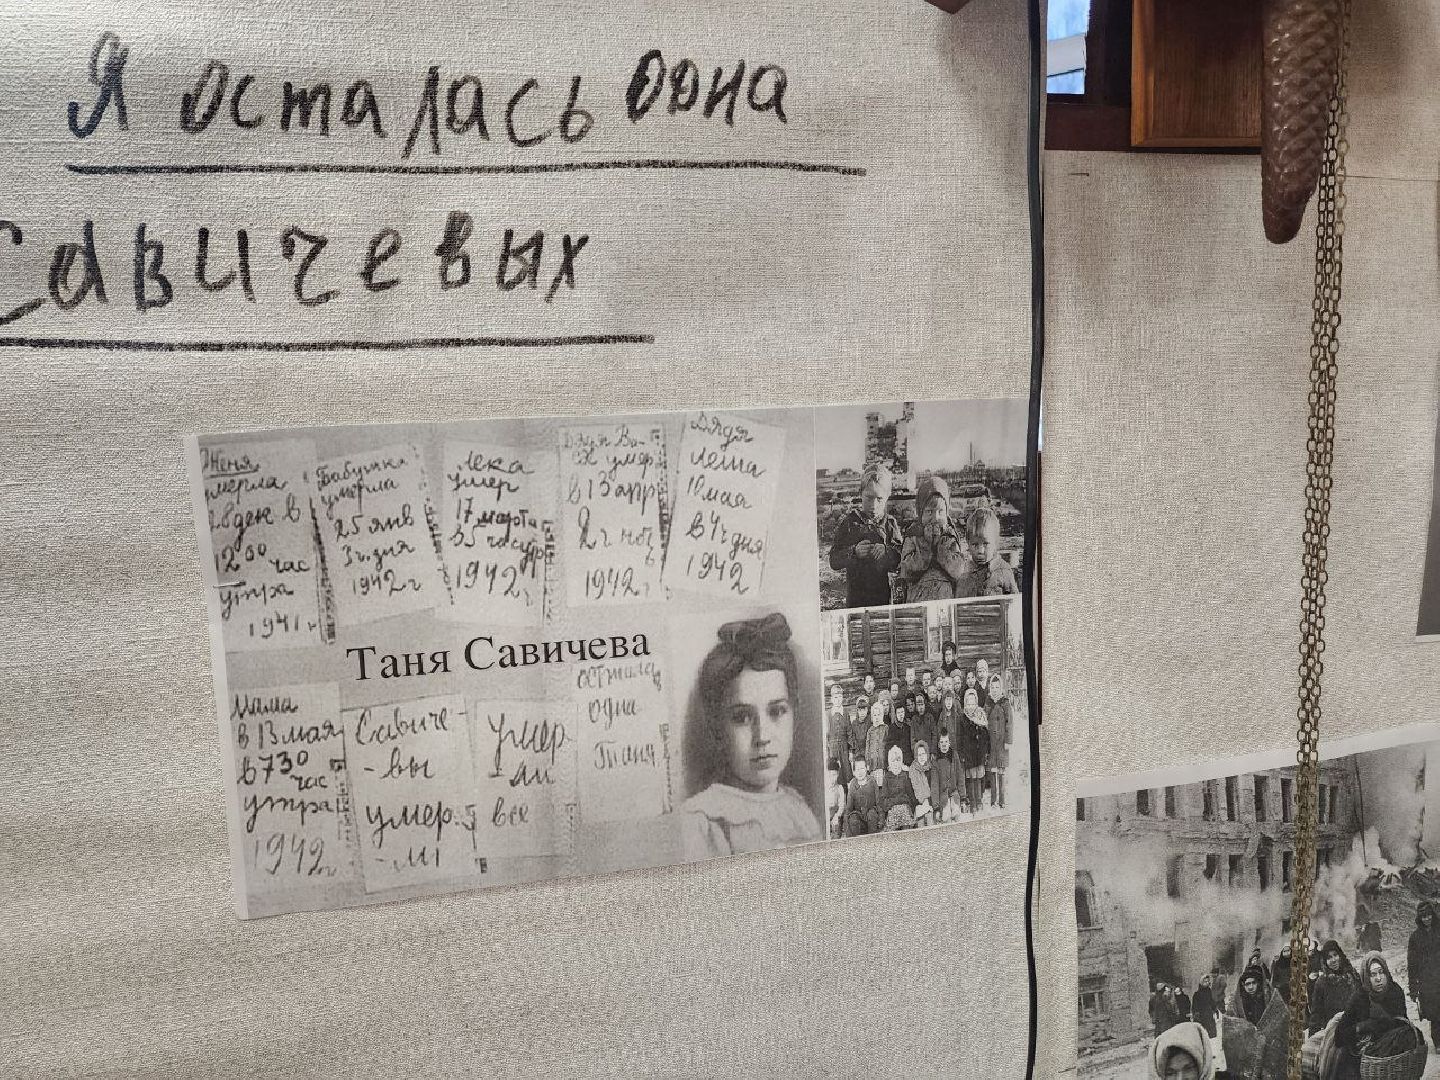 Я осталась одна
Савичевых
Женя
умерла
28 дек в
12 00 час
утра
1941 г
Бабушка
умерла
25 янв
3 ч. дня
1942 г
Лека
умер
17 марта
в 5 час утр
1942 г
Дядя Ва-
ся умер
в 13 апр
2 ч ноч
1942 г
Дядя
Леша
10 мая
в 4 ч дня
1942
Таня Савичева
Мама
в 13 мая
в 7 30
час
утра
1942 г
Савиче-
-вы
умер
-ли
Умер
-ли
все
осталась
одна
Таня